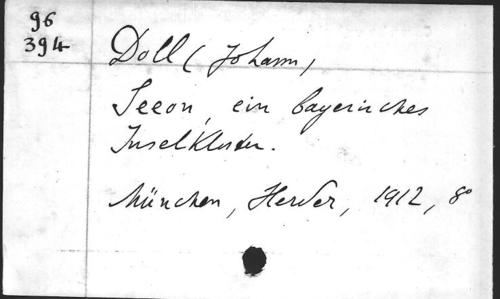 96
394
Doll (Johann)
Seeon, ein bayerisches
Inselkloster.
München, Herder, 1912, 8°